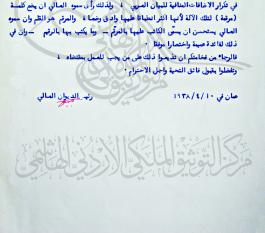 في تكرار الاضافات المتتالية للبيان العربي ، ولذلك رأى سمو العالي ان يضع كلمة
(مرقة) لتلك الآلة لأنها اكثر انطباقا عليها وادق وصفا ، والمرقم هو القلم وان سموه
العالي يستحسن ان يسمى الكاتب عليها بالمرقّم — وما يكتب بها بالرقيم — وان في
ذلك لفائدة صحيحة واختصارا مرغوبا .
فالرجا من فخامتكم ان تذيعوا ذلك على من يجب للعمل بمقتضاه .
وتفضلوا بقبول فائق التحية واجل الاحترام .
عمان في ١٠ / ٤ / ١٩٣٨
رئيس الديوان العالي
مركز التوثيق الملكي الأردني الهاشمي